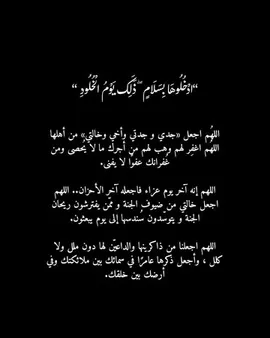 “ادْخُلُوهَا بِسَلَامٍ ۖ ذَٰلِكَ يَوْمُ الْخُلُودِ “
اللهُم اجعل «جدي و جدتي وأخي وخالتي» من أهلها
اللهُم اغفِر لهم وهب لهم من أجرك ما لا يُحصى ومن
غُفرانك عفوًا لا يفنى.
اللهم إنه آخر يوم عزاء فاجعله آخر الأحزان.. اللهم
اجعل خالتي من ضيوف الجنة و ممّن يفترشون ريحان
الجنة و يتوسّدون سُندسها إلى يوم يبعثون.
اللهم اجعلنا من ذاكرينها والداعيّن لها دون ملل ولا
كلل ، وأجعل ذكرها عامرًا في سمائك بين ملائكتك وفي
أرضك بين خلقك.